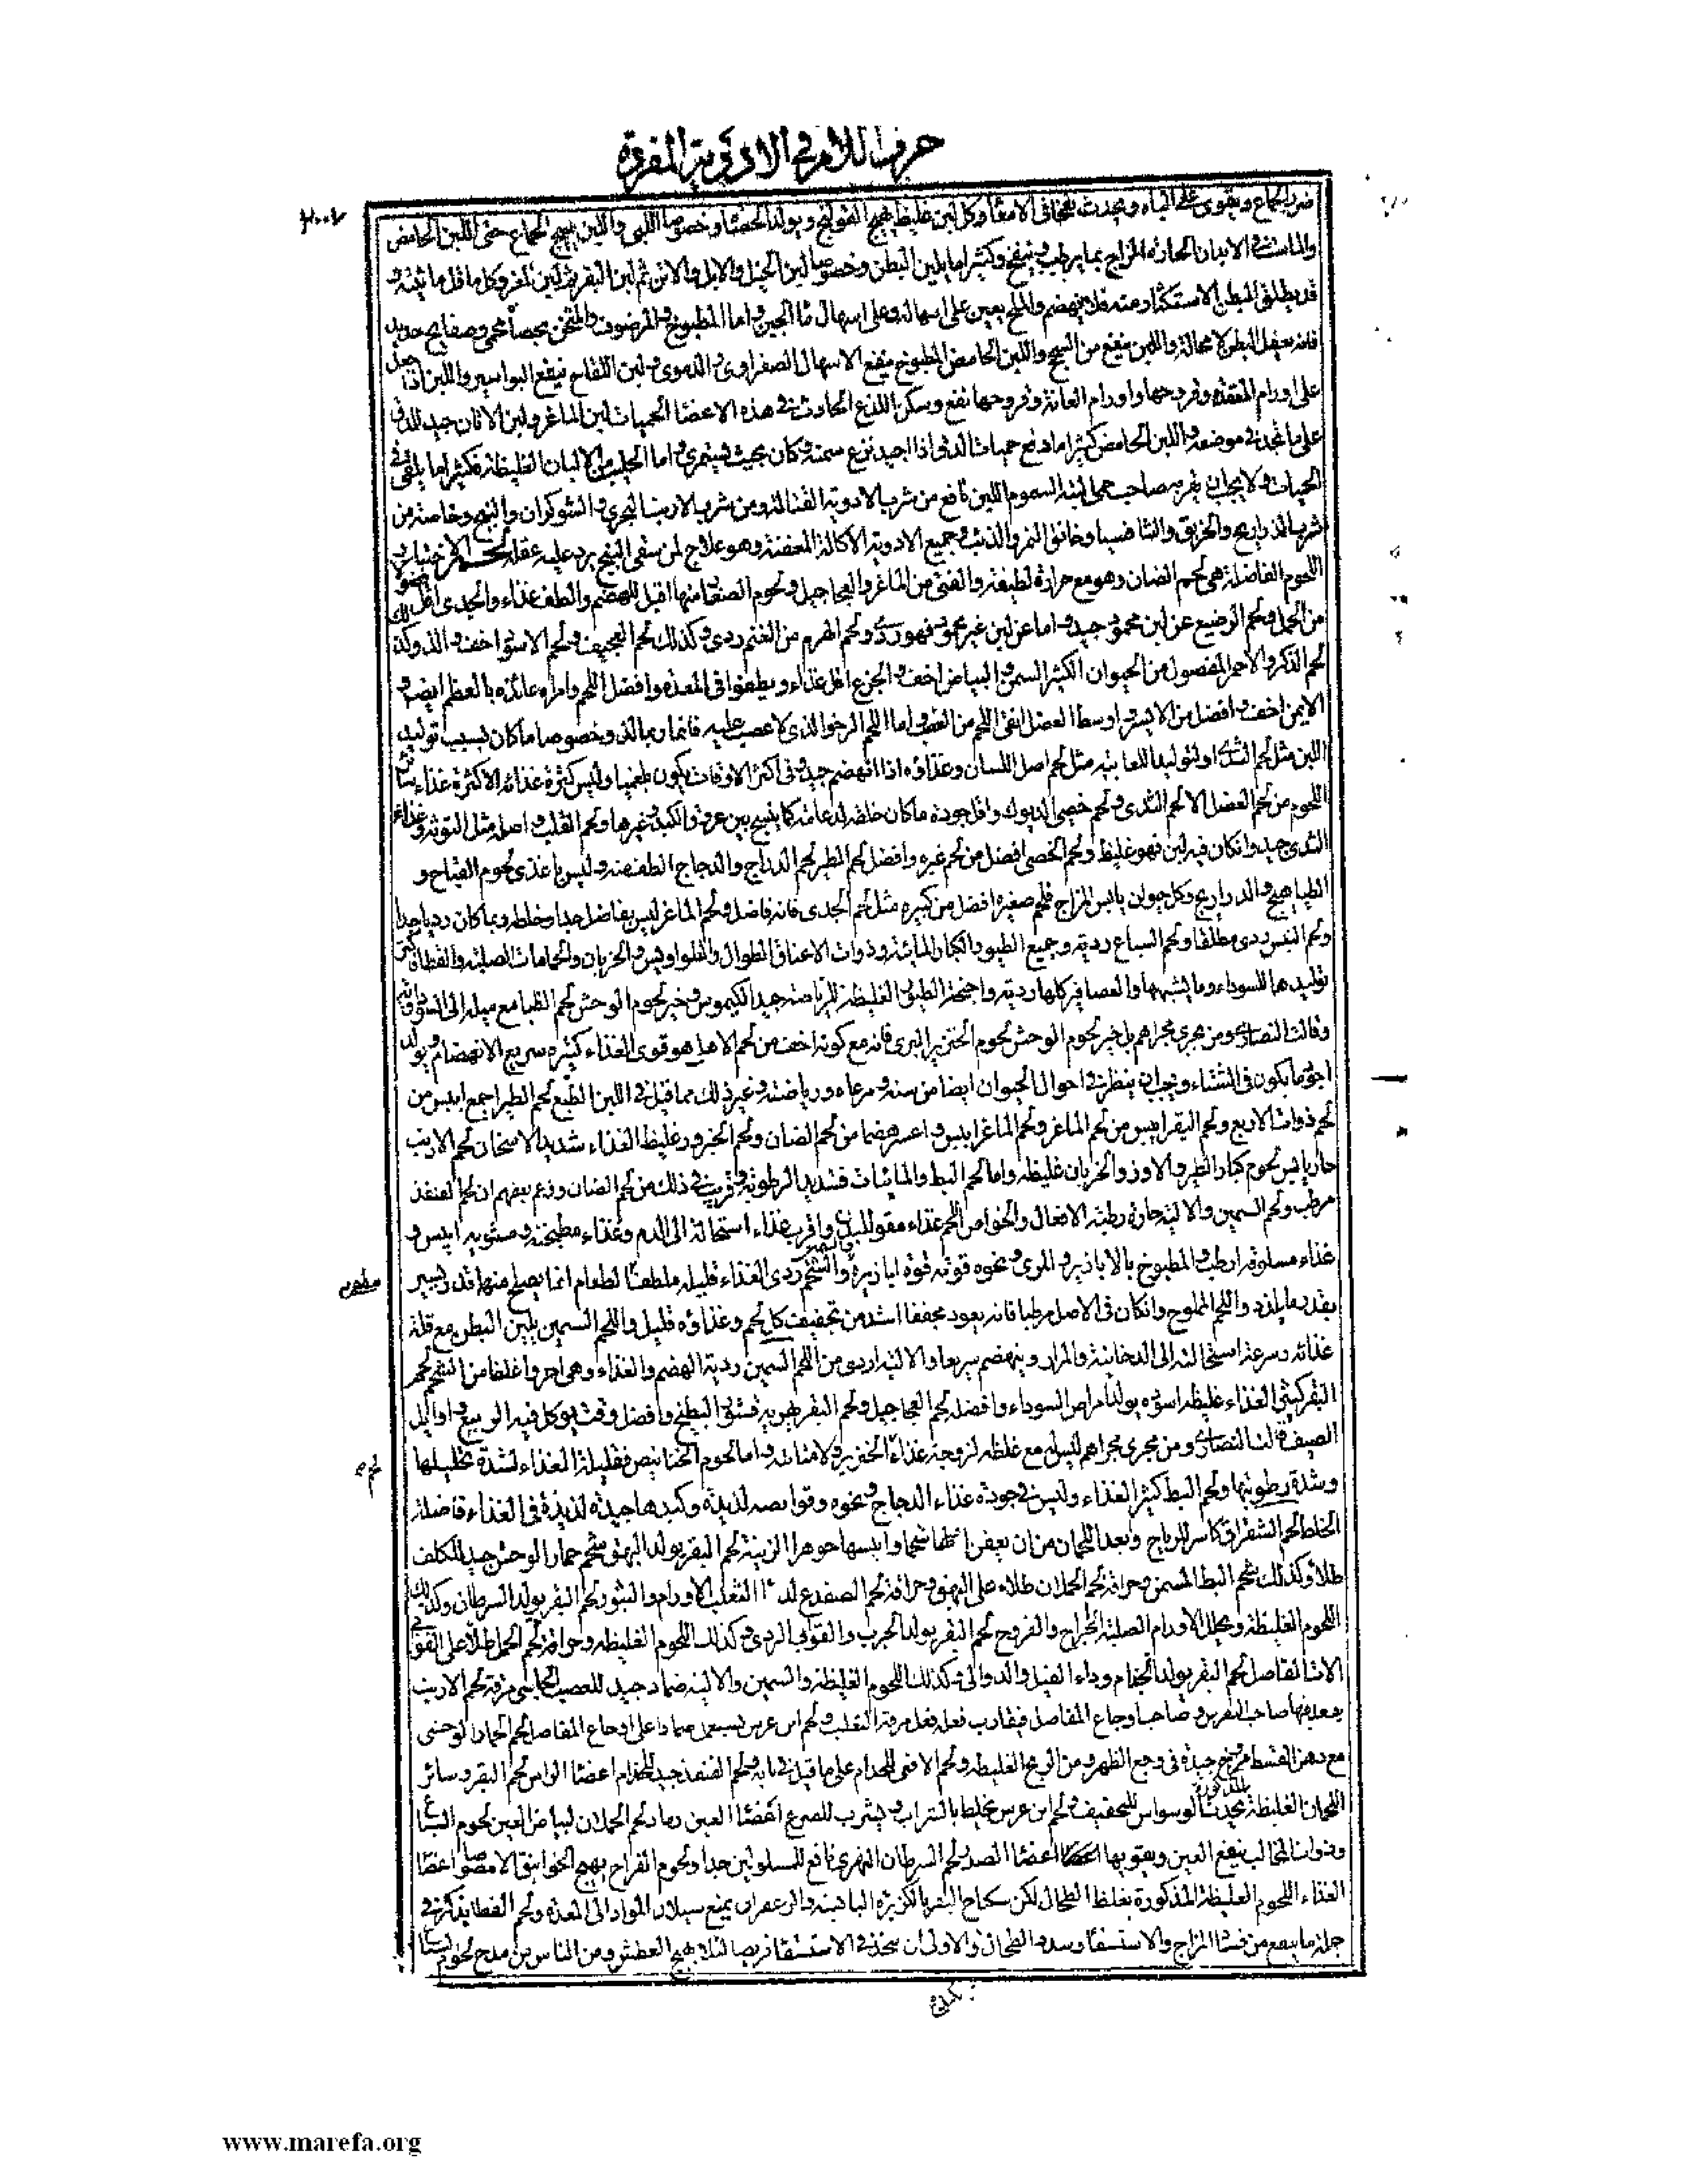 حرف اللام في الادوية المفردة
ضر الجماع ويقوى على الباه ويحدث نفخا في الامعاء وكل لبن غليظ يهيج القولنج ويولد الحصاة وخصوصا اللبى واللبن يهيج الجماع حتى اللبن الحامض
والماست في الابدان الحارة المزاج بما يرطب وينفخ وكثيرا ما يلين البطن وخصوصا لبن الخيل والابل والاتن ثم لبن البقر ثم لبن المغز وكل ما قل مائيته
قد يطلق البطن الاستكثار منه فلا ينهضم والملح يعين على اسهاله وعلى اسهال ماء الجبن واما المطبوخ والمرضوف والمسخن بحصاة محمى وصفايح حديد
فانه يعقل البطن لا محالة واللبن ينفع من السحج واللبن الحامض المطبوخ ينفع الاسهال الصفراوى والدموى ولبن اللقاح ينفع البواسير واللبن اذا جعل
على اورام المقعدة وقروحها واورام العانة وقروحها نفع وسكن اللذع الحادث في هذه الاعضا الحميات لبن الماعز ولبن الاتان جيد للدق
على ما نجده في موضعه واللبن الحامض كثيرا ما دفع حميات الدق اذا اجيد نزع سمنه وكان بحيث يستمرى واما الحليب من الالبان الغليظة فكثيرا ما يلقى في
الحميات ولا يجب ان يقربه صاحب حمى البتة السموم اللبن نافع من شرب الادوية القتالة ومن شرب الارنب البحرى والشوكران والبنج وخاصة من
شرب الذراريح والخربق وخانق النمر والذئب وجميع الادوية الاكالة المعفنة وهو علاج لمن سقى البنج يرد عليه عقله لحم الاختيار
اللحوم الفاضلة هى لحم الضان وهو مع حرارة لطيفة والفتى من الماعز والعجاجيل ولحوم الصغار منها اقبل للهضم والطف غذاء والجدى اقل فضولا
من الحمل ولحم الرضيع عن لبن محمود جيد واما عن لبن غير محمود فهو ردى ولحم الهرم من الغنم ردى وكذلك لحم العجيف ولحم الاسود اخف والذ وكذلك
لحم الذكر والاحمر المفصول من الحيوان الكثير السمن والبياض اخف والجزع اقل غذاء ويطفوا في المعدة وافضل اللحم وامراه عائذه بالعظم ايضا و
الايمن اخف وافضل من الايسر واما اللحم الرخو الذى لا عصب عليه فانه ربما لذ وخصوصا ما كان بسبب توليد
اللبن مثل لحم الثدى او لتوليد اللعابية مثل لحم اصل اللسان وغذاؤه اذا انهضم جيد وفى اكثر الاوقات يكون بلغميا وليس كثرة غذائه الاكثرة غذاء
اللحوم من لحم العضل الا لحم الثدى ولحم خصى الديوك واقل جودة ما كان خلقه لدعامة كما ينسج بين عروق الكبد وغيرها ولحم القلب واصله مثل التوثة وغذاء
الثدى جيد وان كان فيه لبن فهو غليظ ولحم الخصى افضل من لحم غيره وافضل لحم الطير لحم الدراج والدجاج الطف منه وليس باغذى لحوم القباج و
الطياهيج والدراريج وكل حيوان يابس المزاج فلحم صغيره افضل من كبيره مثل لحم الجدى فانه فاضل ولحم الماعز ليس بفاضل جدا وخلطه ربما كان رديا جدا
ولحم التيس ردى مطلقا ولحم السباع ردية وجميع الطيور الكبار المائية وذوات الاعناق الطوال والطواويس والخربان والحمامات الصلبة والقطا كثير
توليدها للسوداء وما يشبهها والعصافير كلها ردية واجنحة الطير الغليظة للرياضة جيد الكيموس وخير لحوم الوحش لحم الظبا مع ميله الى السوداوية
وقالت النصارى ومن يجرى مجراهم بل خير لحوم الوحش لحوم الخنزير البرى فانه مع كونه اخف من لحم الاهلى هو قوى الغذاء كثيره سريع الانهضام
اجود ما يكون في الشتاء ويجب ان ينظر في احوال الحيوان ايضا من سنه ومرعاه ورياضته وغير ذلك مما قيل في اللبن الطبع لحم الطير اجمع ايبس من
لحم ذوات الاربع ولحم البقر ايبس من لحم الماعز ولحم الماعز ايبس واعسر هضما من لحم الضان ولحم الجزور غليظ الغذاء شديد الاسخان لحم الارنب
حار يابس لحوم كبار الطير والاوز والخربان غليظة واما لحم البط والمائيات فشديد الرطوبة وقريب في ذلك من لحم الضان وزعم بعضهم ان لحم القنفذ
مرطب ولحم السمين والالية حارة رطبة الافعال والخواص اللحم غذاء مقو للبدن واقرب غذاء استحالة الى الدم وغذاء مطجنه ومشويه ايبس و
غذاء مسلوقه ارطب والمطبوخ بالابازير والمرى ونحوه قوته قوة ابازيره والشحم ردى الغذاء قليله ملطف الطعام انما يصلح منها قدر يسير
بقدر ما يلذذ واللحم المملوح وان كان في الاصل مرطبا فانه يعود مجففا اشد من تجفيف كل لحم وغذاؤه قليل واللحم السمين يلين البطن مع قلة
غذائه وسرعة استحالته الى الدخانية والمرار وينهضم سريعا والالية اردى من اللحم السمين ردية الهضم والغذاء وهى احر واغلظ من الشحم لحم
البقر كثير الغذاء غليظه اسوده يولد امراض السوداء وافضله لحم العجاجيل ولحم البقر يهريه قشور البطيخ وافضل وقت يوكل فيه الربيع واوايل
الصيف قالت النصارى ومن يجرى مجراهم ليس له مع غلظه لزوجة غذاء الخنزير ولا متانته واما لحوم الخنانيص فقليلة الغذاء لشدة تحليلها
وشدة رطوبتها ولحم البط كثير الغذاء وليس في جودة غذاء الدجاج ونحوه وقوانصه لذيذة وكبدها جيدة لذيذة في الغذاء فاضلة
الخلط لحم الشقراق كاسر للرياح وابعد اللحمان من ان يعفن اقلها شحما وايبسها جوهرا الزينة لحم البقر يولد البهق شحم حمار الوحش جيد للكلف
طلاء وكذلك شحم البط المسمن وحراقة لحم الحملان طلاء على البهق وحراقة لحم الضفدع لداء الثعلب الاورام والبثور لحم البقر يولد السرطان وكذلك
اللحوم الغليظة ويحلل الاورام الصلبة الجراح والقروح لحم البقر يولد الجرب والقوابى الردى وكذلك اللحوم الغليظة وحراقة لحم الحمل طلاء على القوابى
الات المفاصل لحم البقر يولد الجذام وداء الفيل والدوالى وكذلك اللحوم الغليظة والسمين والالية ضماد جيد للعصب الجاسى مرقة لحم الارنب
يقعد فيها صاحب النقرس وصاحب اوجاع المفاصل فيقارب فعله فعل مرقة الثعلب ولحم ابن عرس يستعمل ضمادا على اوجاع المفاصل لحم الحمار الوحشى
مع دهن القسط مروخ جيدة فى وجع الظهر ومن الريح الغليظة ولحم الافعى للجذام على ما قيل في بابه ولحم القنفذ جيد للجذام اعضا الراس لحم البقر وسائر
اللحمان الغليظة المذكورة يحدث الوسواس للتجفيف ولحم ابن عرس يخلط بالشراب ويشرب للصرع اعضا العين رماد لحم الحملان لبياض العين لحوم السباع
وذوات المخالب ينفع العين ويقويها اعضا الصدر لحم السرطان النهرى نافع للمسلولين جدا ولحوم الفراخ يهيج الخوانيق الا مصوصا اعضا
الغذاء اللحوم الغليظة المذكورة يغلظ الطحال لكن سكباج البقر بالكزبرة اليابسة والزعفران يمنع سيلان المواد الى المعدة ولحم القطا يذكر في
جملة ما ينفع من فساد المزاج والاستسقا وسدد الطحال والاولى ان يتخذ في الاستسقا قريصا لئلا يهيج العطش ومن الناس من مدح لحوم السباع
www.marefa.org